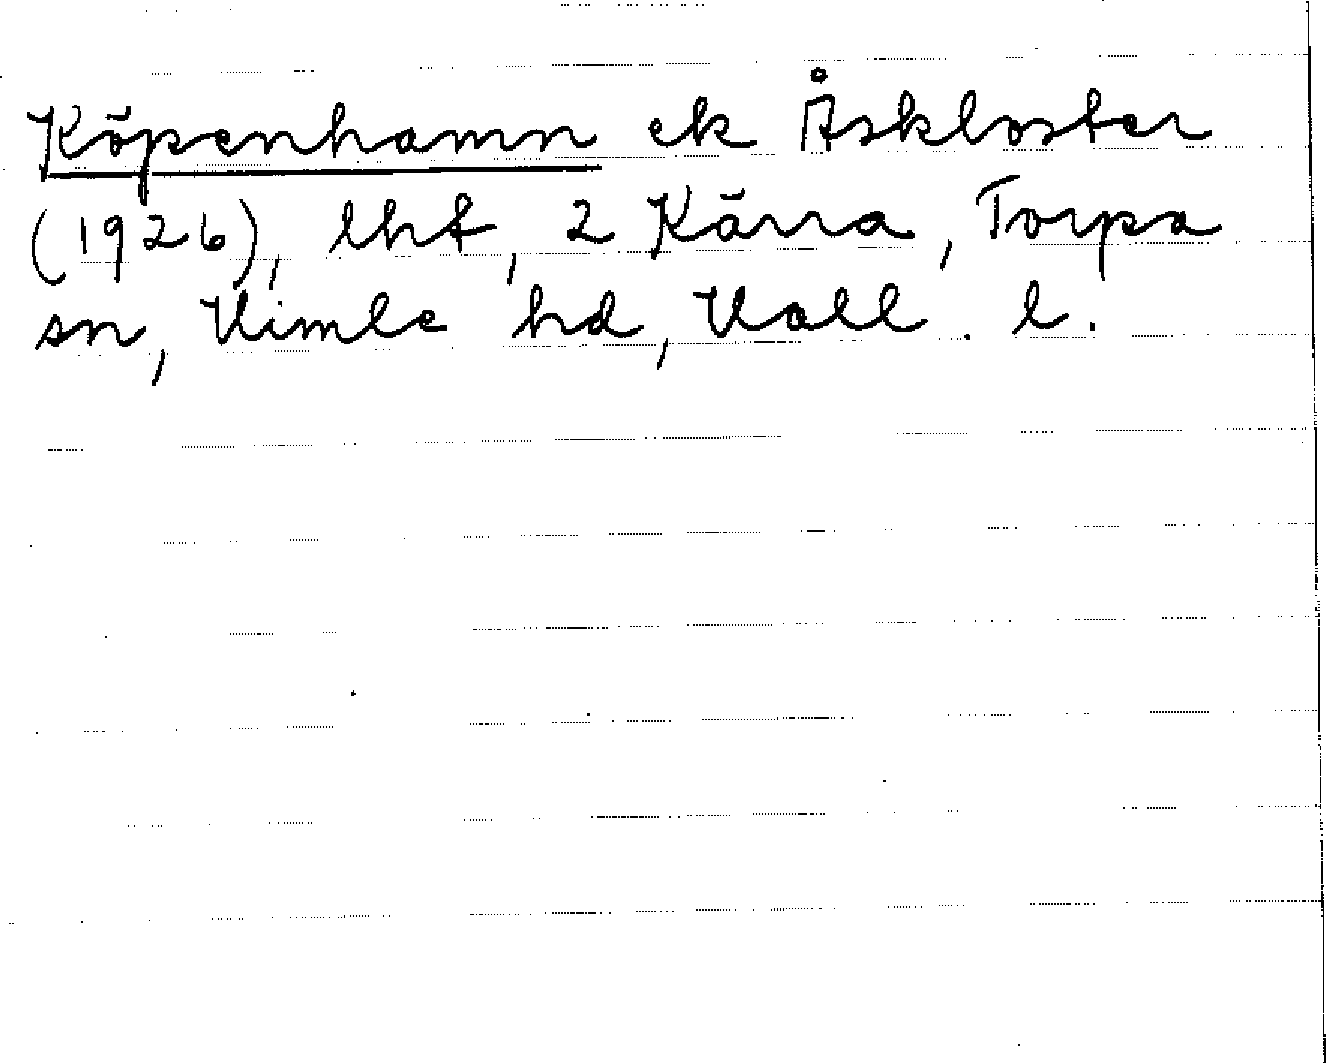 Köpenhamn ek Åskloster
(1926), lht, 2 Kärra, Torpa
sn, Himle hd, Hall. l.